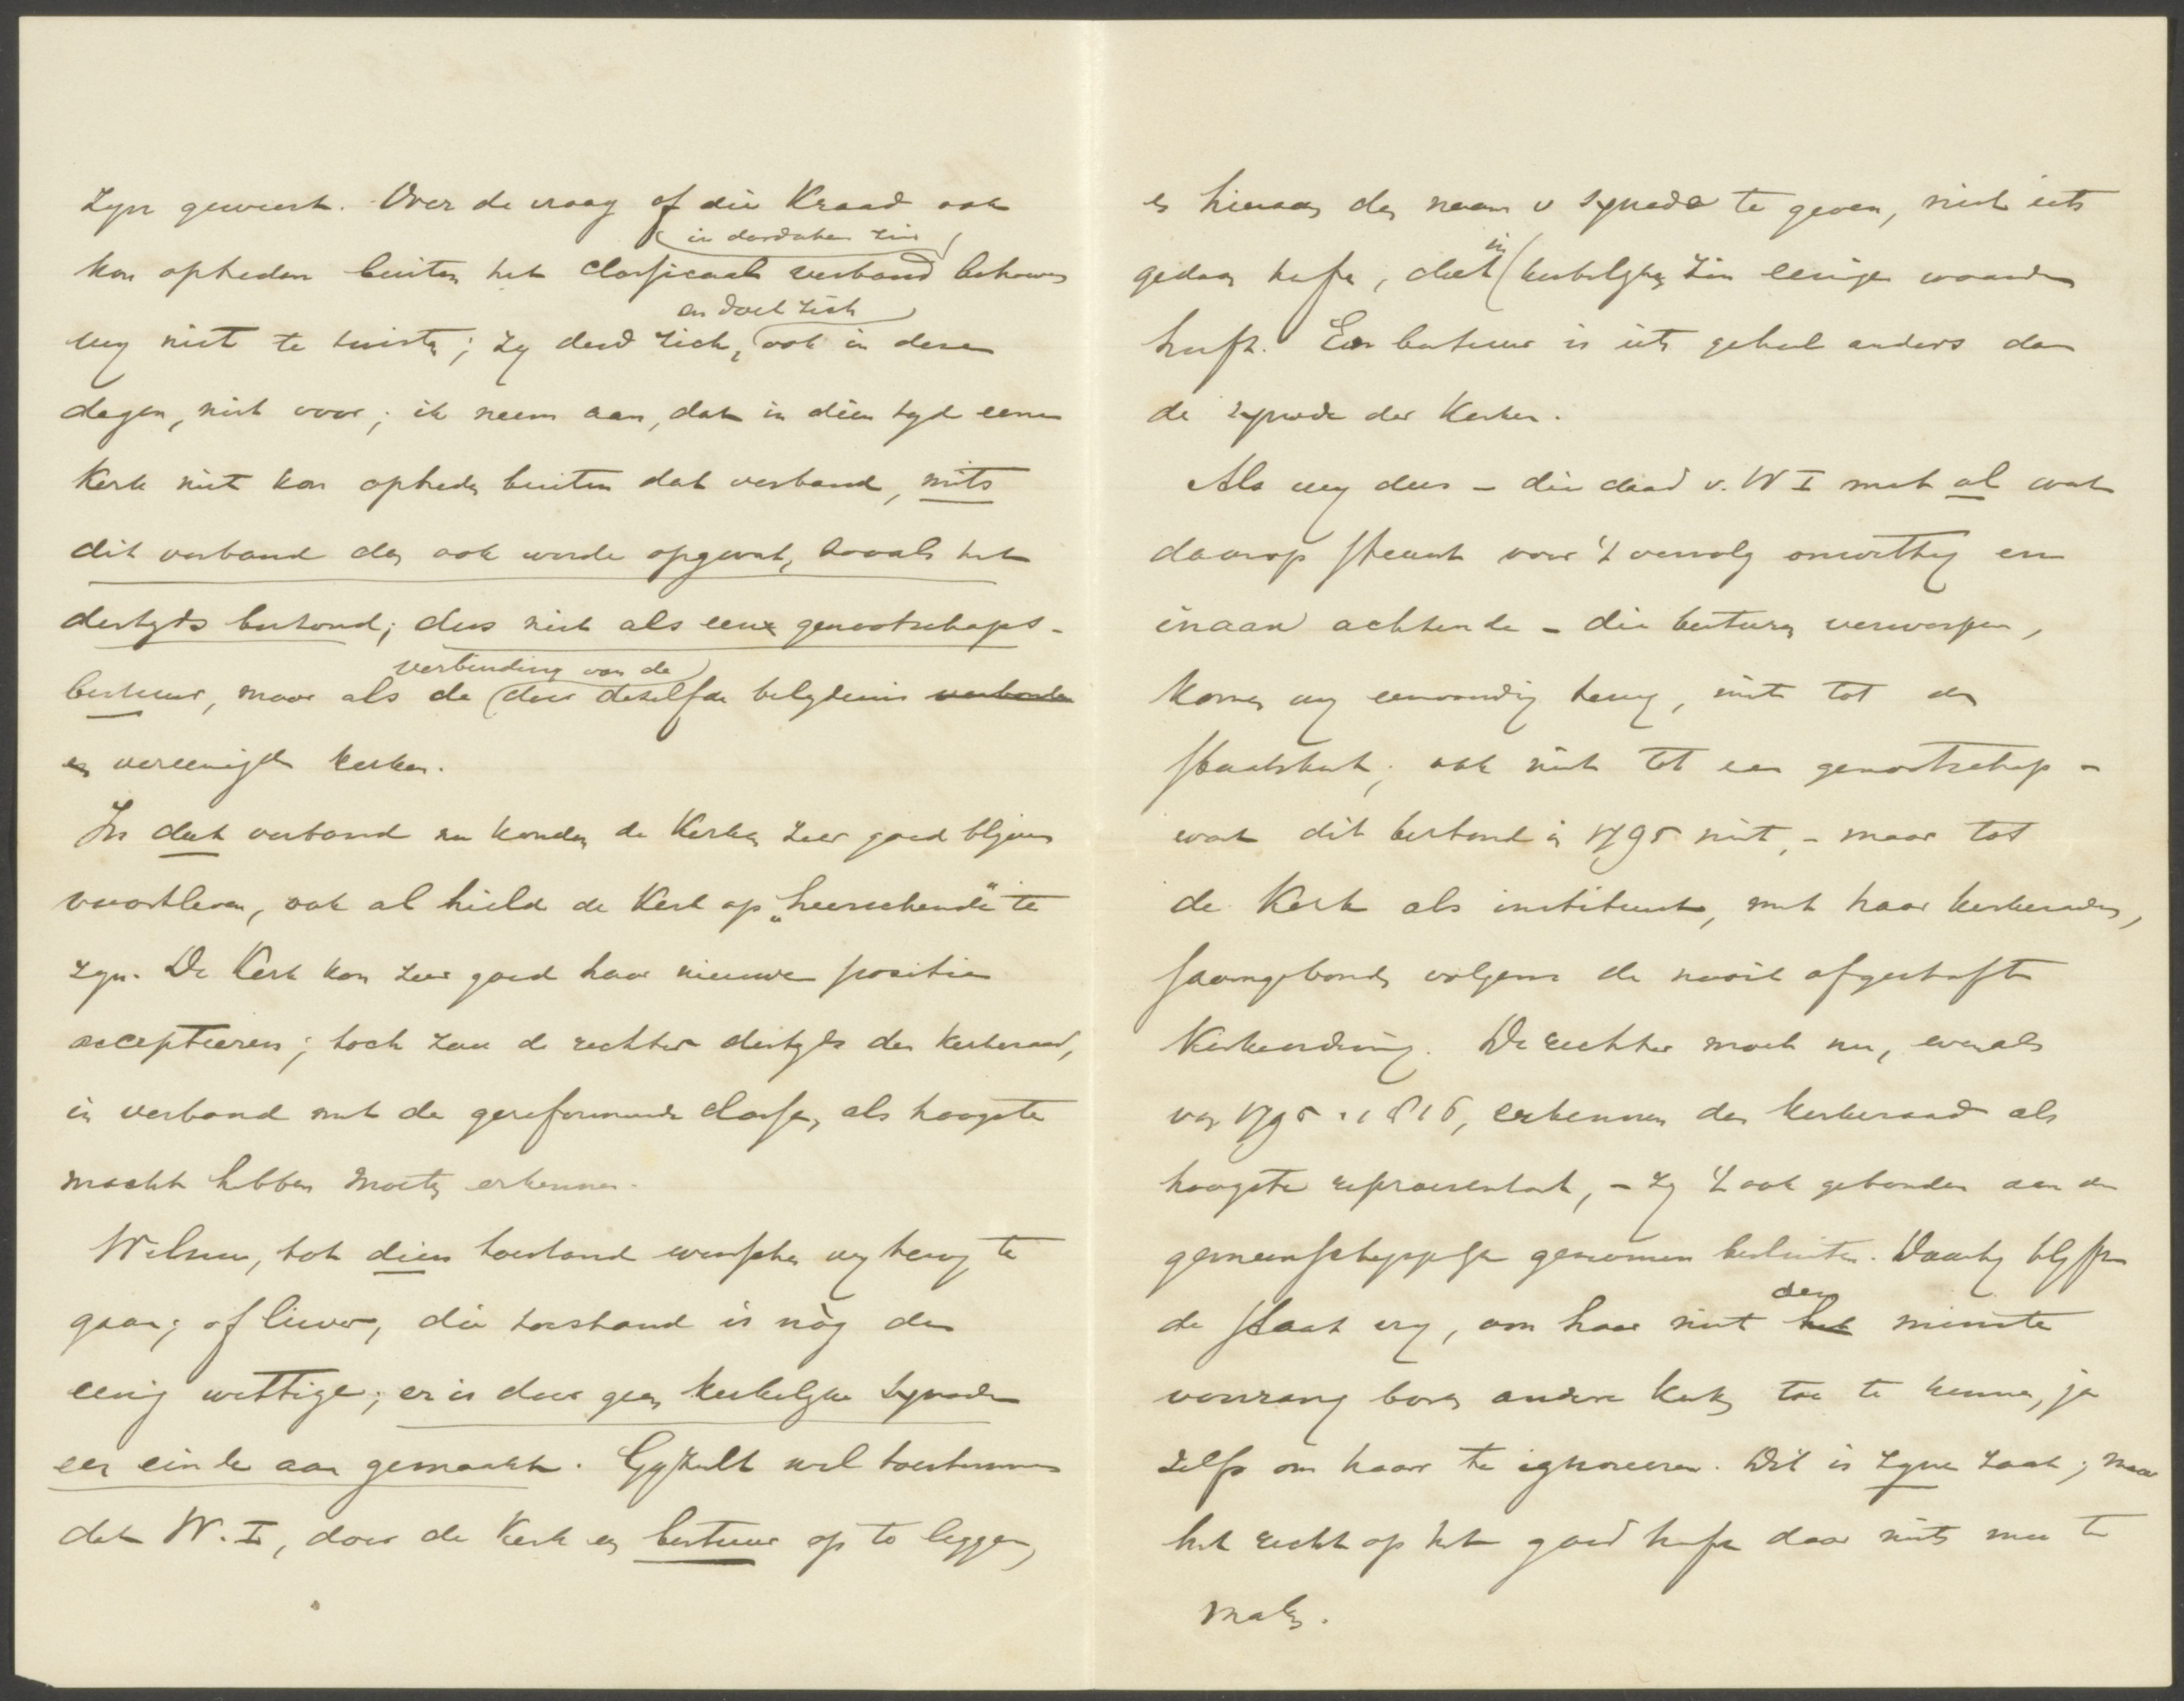 zyn geweest. Over de vraag of die Kraad ook
in dordschen zin
kon optreden buiten het classicaal verband behoeven
en doet zich
wy niet te twisten; zy deed zich, ook in deze
dagen, niet voor; ik neem aan, dat in dien tyd eene
Kerk niet kon optreden buiten dat verband, mits
dit verband dan ook worde opgevat, zooals het
destyds bestond; dus niet als een genootschaps-
verbinding van de
bestuur, maar als de door dezelfde belydenis verbonden
en vereenigde kerken.
In dat verband nu konden de Kerken zeer goed blyven
voortleven, ook al hield de Kerk op „heerschende" te
zyn. De Kerk kon zeer goed haar nieuwe positie
accepteeren; toch zou de rechter destyds den kerkeraad,
in verband met de gereformeerde classen, als hoogste
macht hebben moeten erkennen.
Welnu, tot dien toestand wenschen wy terug te
gaan; of liever, die toestand is nòg de
eenig wettige; er is door geen kerkelyke synode
een einde aan gemaakt. Gy zult wel toestemmen
dat W. I, door de Kerk een bestuur op te leggen,
en hieraan den naam v synode te geven, niet iets
in
gedaan heeft, dat kerkelyken zin eenige waarde
heeft. Een bestuur is iets geheel anders dan
de synode der Kerken.
Als wy dus – die daad v. W I met al wat
daarop steunt voor 't vervolg onwettig en
inaan achtende – die besturen verwerpen,
komen wy eenvoudig terug, niet tot de
staatskerk; ook niet tot een genootschap –
want dit bestond in 1795 niet, – maar tot
de Kerk als instituut, met haar kerkeraden,
saamgebonden volgens de nooit afgeschafte
Kerkenordening. De rechter moet nu, evenals
van 1795–1816, erkennen den kerkeraad als
hoogste representant, – zy 't ook gebonden aan de
gemeenschappelyk genomen besluiten. Daarby blyft
den
de staat vry, om haar niet het minste
voorrang boven andere kerken toe te kennen, ja
zelfs om haar te ignoreeren. Dit is zyne zaak; maar
het recht op het goed heeft daar niets mee te
maken.